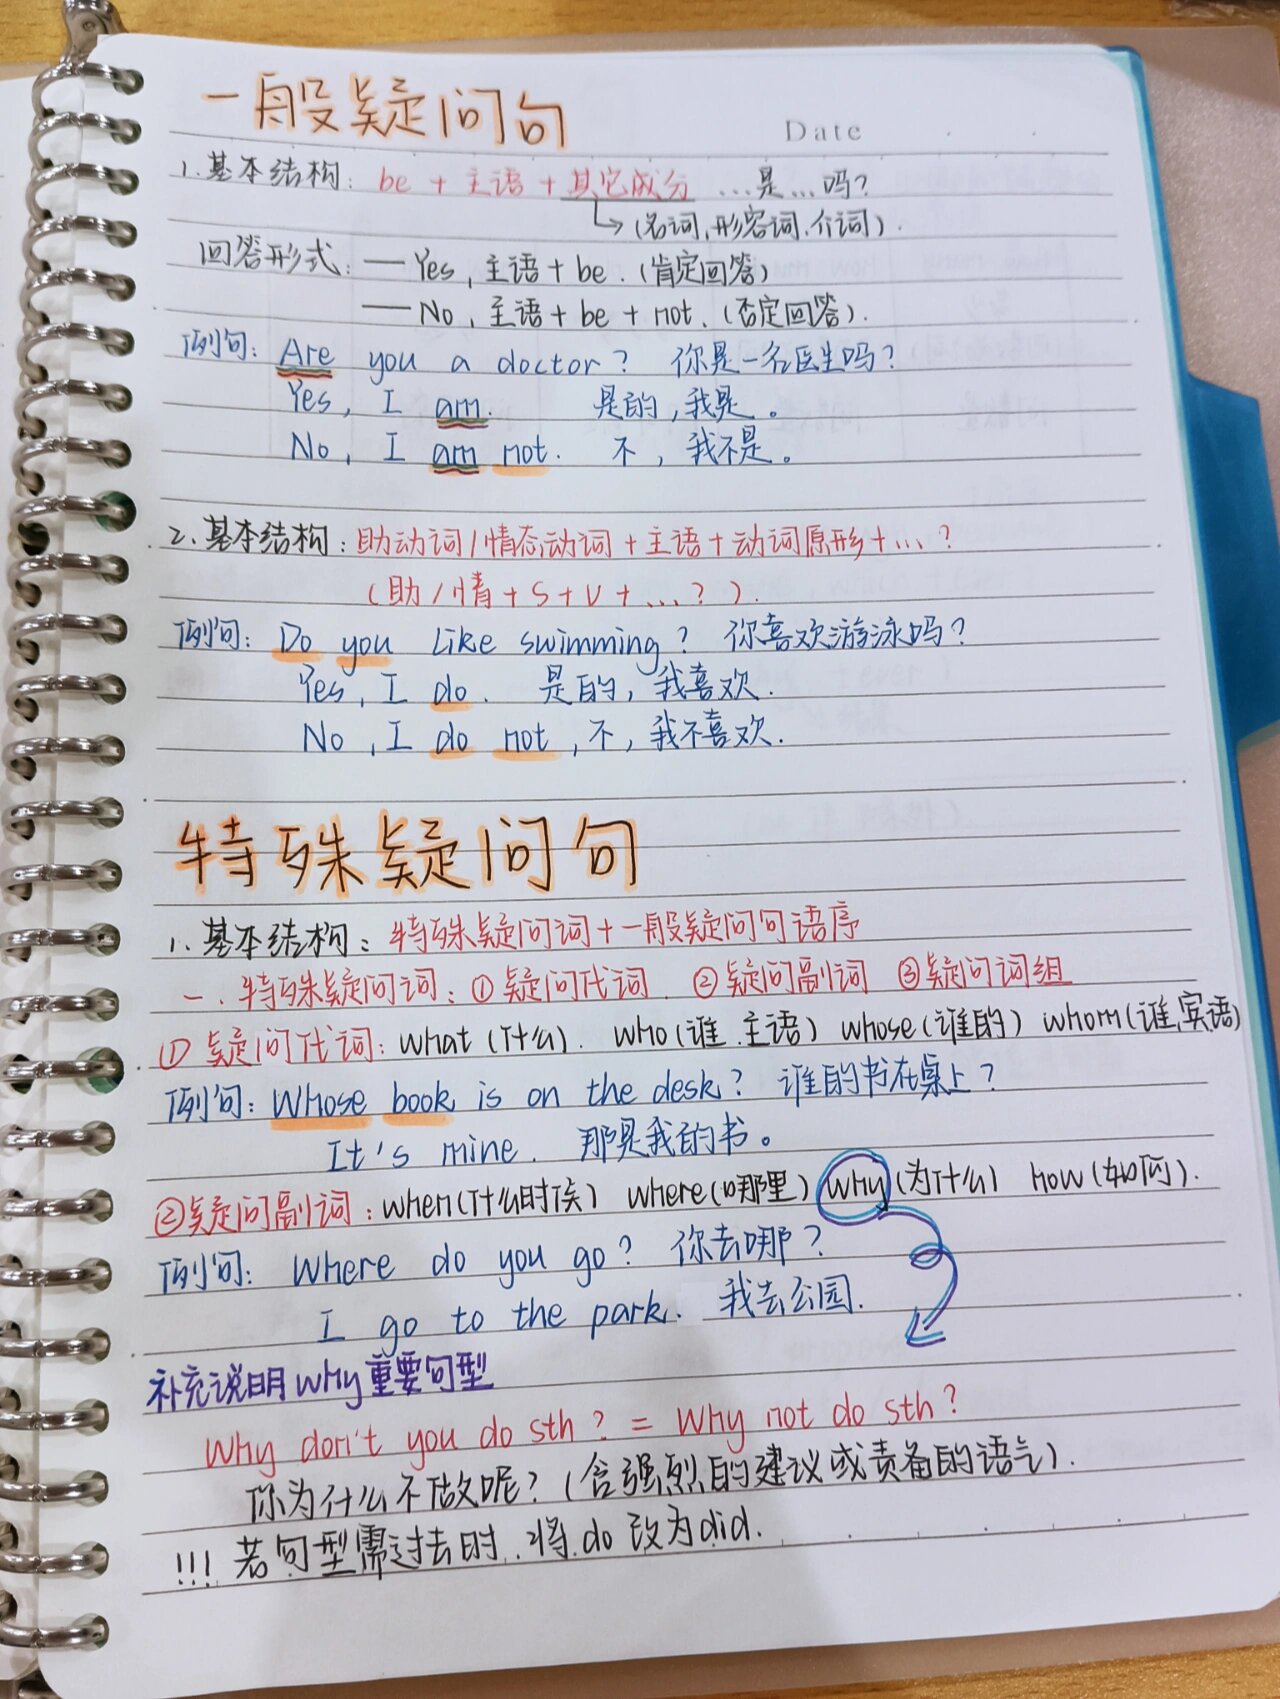 一般疑问句
Date
1.基本结构: be + 主语 + 其它成分 ...是...吗?
(名词,形容词.介词).
回答形式: — Yes, 主语 + be. (肯定回答)
— No, 主语 + be + not. (否定回答).
例句: Are you a doctor? 你是一名医生吗?
Yes, I am. 是的,我是。
No, I am not. 不,我不是。
2.基本结构: 助动词/情态动词 + 主语 + 动词原形 + ...?
(助/情 + S + V + ...?).
例句: Do you like swimming? 你喜欢游泳吗?
Yes, I do. 是的,我喜欢.
No, I do not, 不,我不喜欢.
特殊疑问句
1.基本结构: 特殊疑问词 + 一般疑问句语序
一.特殊疑问词: ①疑问代词. ②疑问副词 ③疑问词组
①疑问代词: what (什么). who (谁.主语) whose (谁的) whom (谁,宾语)
例句: Whose book is on the desk? 谁的书在桌上?
It's mine. 那是我的书。
②疑问副词: when (什么时候) where (哪里) why (为什么) how (如何).
例句: Where do you go? 你去哪?
I go to the park. 我去公园.
补充说明why重要句型
Why don't you do sth? = Why not do sth?
你为什么不做呢? (含强烈的建议或责备的语气).
!!! 若句型需过去时.将do改为did.